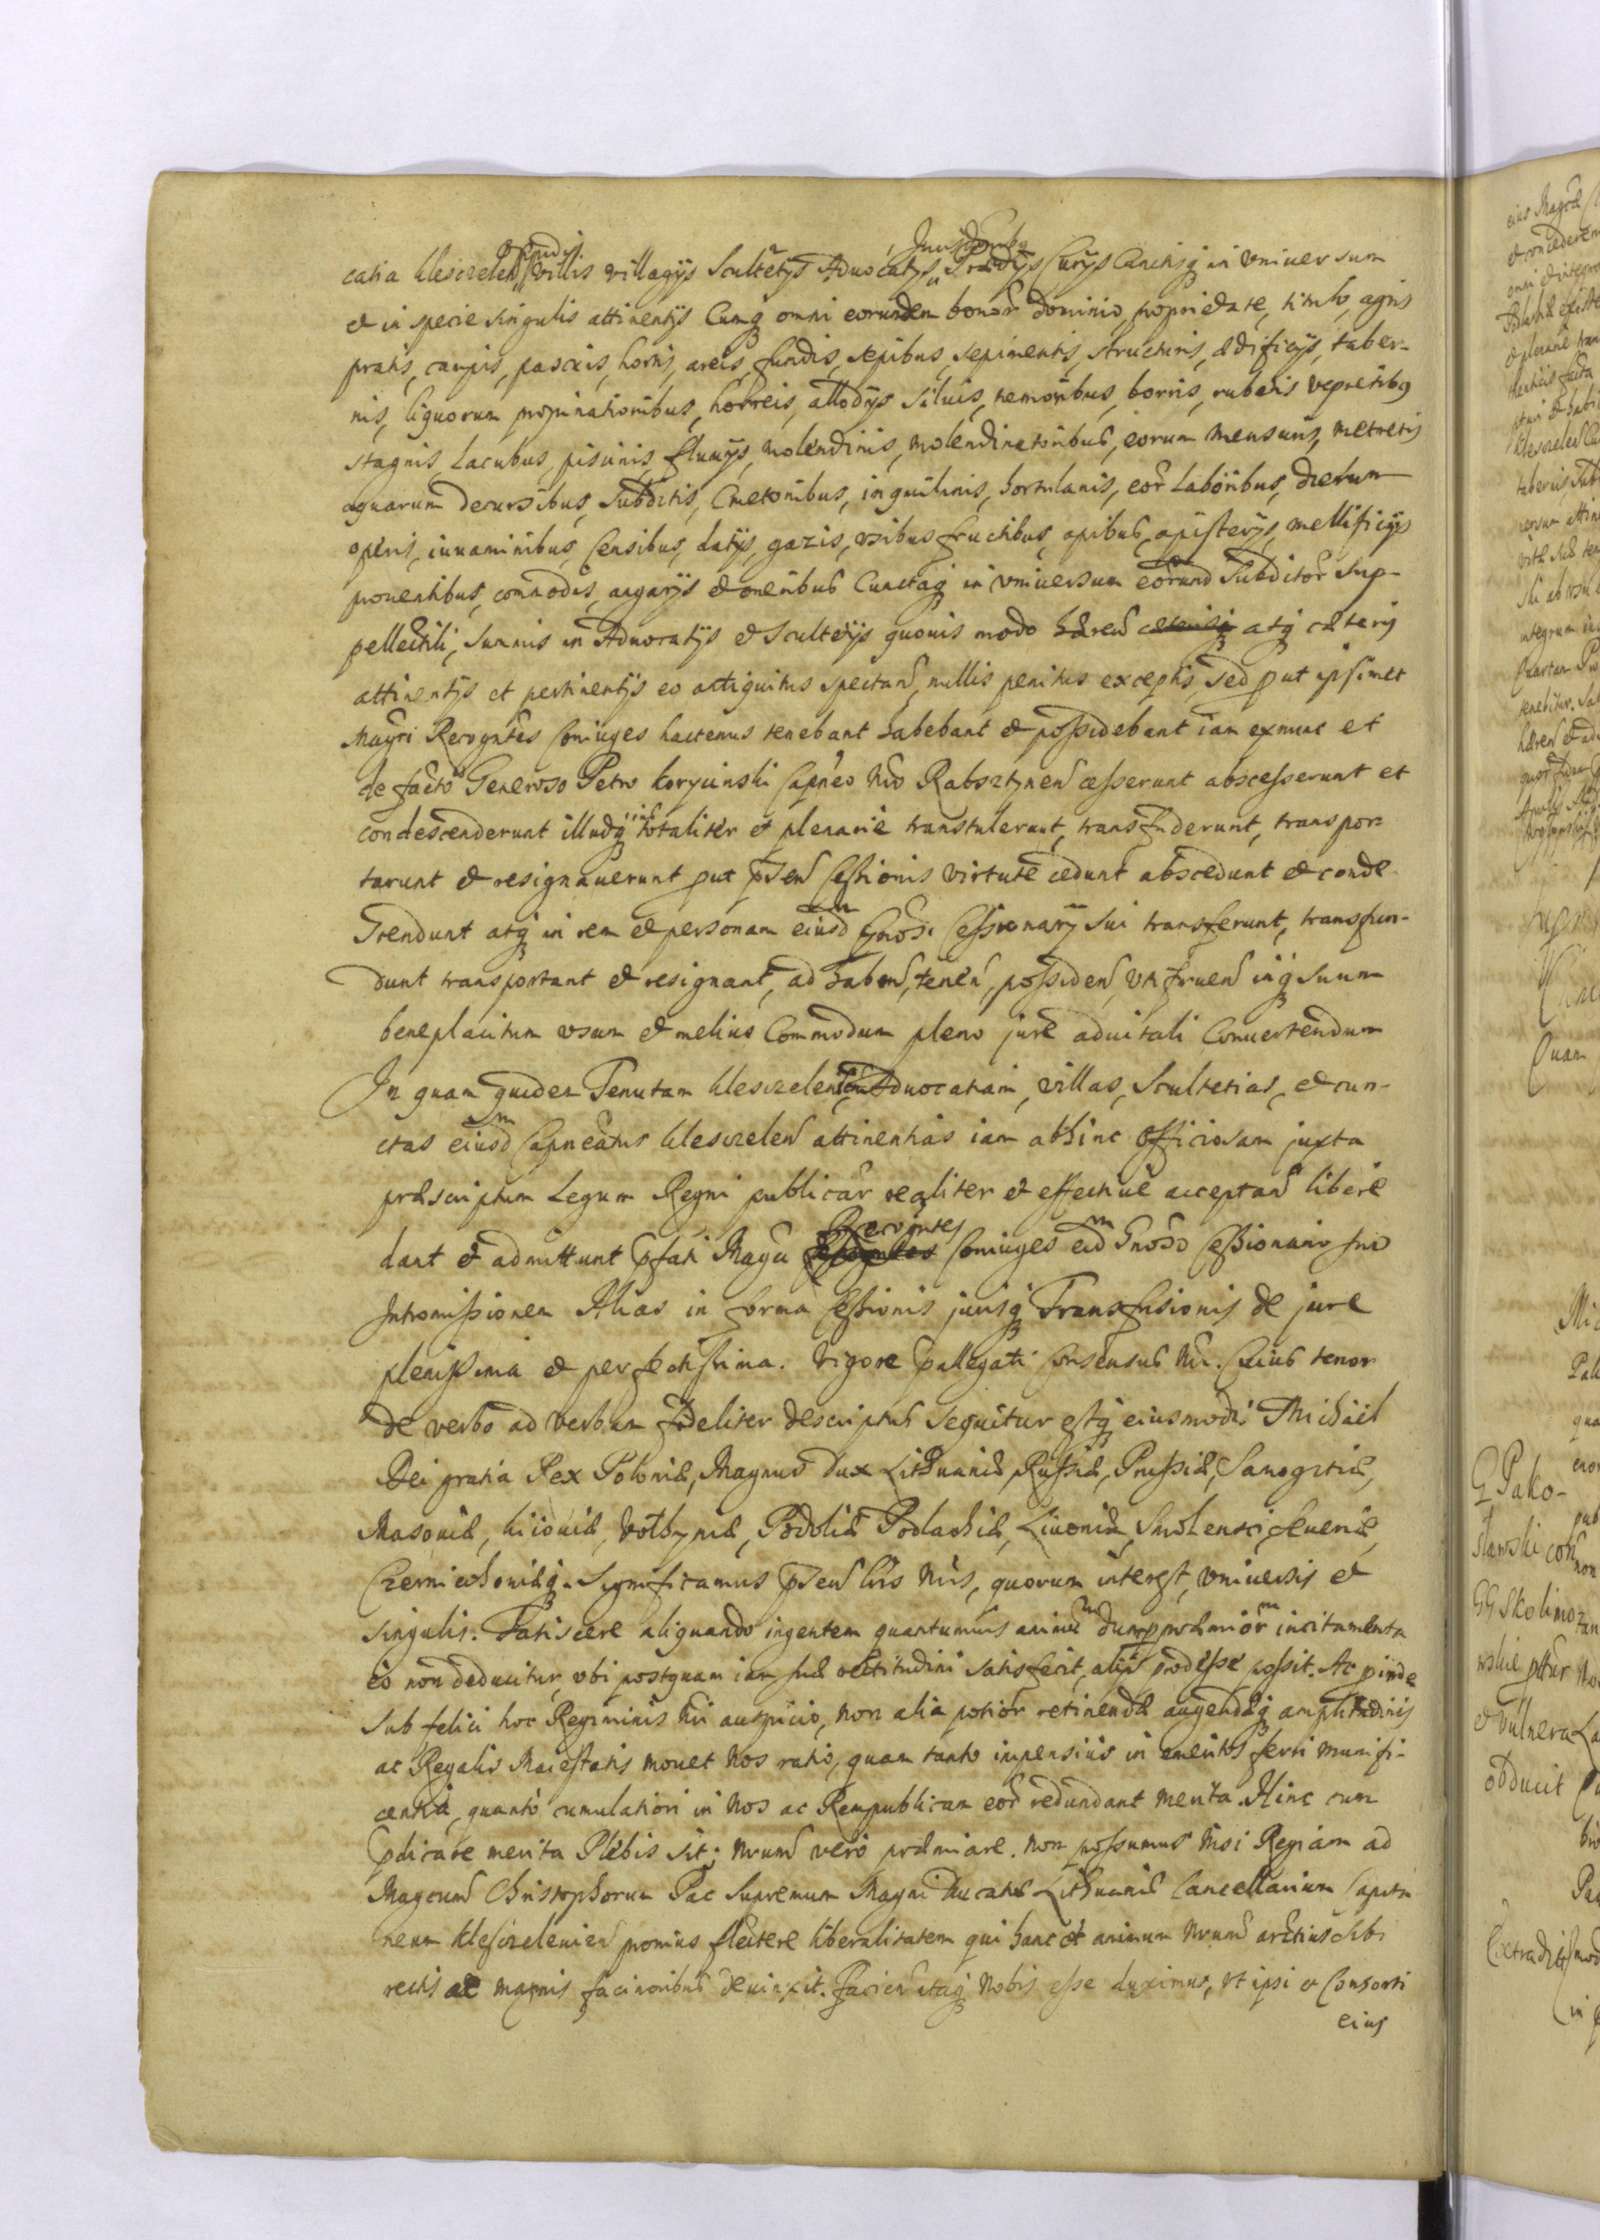 catia Kleszczelen villis villagijs Scultetijs Advocatijs Praedijs Curijs Cunctisq in vniversum
et in specie singulis attinentijs Cumq omni eorundem bonor dominio, proprietate, titulo, agris
pratis, campis, pascuis, hortis, areis, fundis, sepibus, sepimentis, structuris, ædificijs, taber-
nis, liquorum propinationibus, horreis, allodijs siluis, nemoribus, borris, rubetis vepretibq
stagnis, Lacubus, piscinis, fluuijs, molendinis, molendinatoribus, eorum mensuris, metretis
aquarum decursibus, Subditis, Cmetonibus, inquilinis, hortulanis, eor laboribus, dierum
operis, iuuaminibus, Censibus, datijs, gazis, vsibus fructibus, apibus, apisterijs, mellificijs
prouentibus, commodis, angarijs et oneribus Cunctaq in vniuersum eorund Subditor Sup-
pellectili, Summis in Aduocatijs et Scultetijs quouis modo hæren atq cæteris
attinentijs et pertinentijs eo antiquitus spectan, nullis penitus exceptis, sed put ipsimet
Magci Recogntes Coniuges hactenus tenebant habebant et possidebant iam exnunc et
de facto Generoso Petro Koryciński Capneo Nro Rabsztynen cesserunt abscesserunt et
condescenderunt illudq totaliter et plenarie transtulerunt, transfuderunt, transpor-
tarunt et resignauerunt put psen Cessionis virtute cedunt abscedunt et conde
scendunt atq in rem et personam eiusd Gnosi Cessionarij sui transferunt, transfun-
dunt transportant et resignant, ad haben, tenen, possiden, vtifruen inq suum
beneplacitum vsum et melius Commodum pleno jure aduitali Conuertendum
In quam quidem Tenutam Kleszczelen Aduocatiam, villas, Scultetias, et cun-
ctas eiusd Capneatus Kleszczelen attinentias iam abhinc Officiosam juxta
præscriptum Legum Regni publicar realiter et effectiue acceptan libere
dant et admittunt pfati Magci Recogntes Coniuges eid Gnoso Cessionario suo
Intromissionem Alias in forma Cessionis jurisq Transfusionis de jure
plenissima et perfectissima. Vigore pallegati Consensus Nri. Cuius tenor
de verbo ad verbum fideliter descriptus sequitur estq eiusmodi Michael
Dei gratia Rex Poloniæ, Magnus Dux Lithuaniæ, Russiæ, Prussiæ, Samogitiæ,
Masouiæ, Kiiouiæ, Volhyniæ, Podoliæ Podlachiæ, Liuoniæ, Smolensci, Seueriæ,
Czerniechouiæq. Significamus psen Lris Nris, quorum interest, vniuersis et
singulis. Fatiscere aliquando ingentem quantumuis animu dum præmior incitamenta
eo non deducitur, vbi postquam iam suæ rectitudini satisfecit, alijs prodesse possit. Ac pinde
sub felici hoc Regiminis Nri auspicio, non alia potior retinendæ augendæq amplitudinis
ac Regalis Maiestatis mouet Nos ratio, quam tanto impensius in emeritos ferri munifi-
centia, quanto cumulatiori in Nos ac Rempublicam eor redundant merita. Hinc cum
pdicare merita Plebis sit; Nrum vero præmiare. Non possumus Nisi Regiam ad
Magcum Christophorum Pac Supremum Magni Ducatus Lithuaniæ Cancellarium Capita
neum Kleszczelenien promius flectere liberalitatem qui hanc et animum Nrum arctius sibi
rectis ac magnis facinoribus deuinxit. Facien itaq Nobis esse duximus, vt ipsi et Consorti
eius